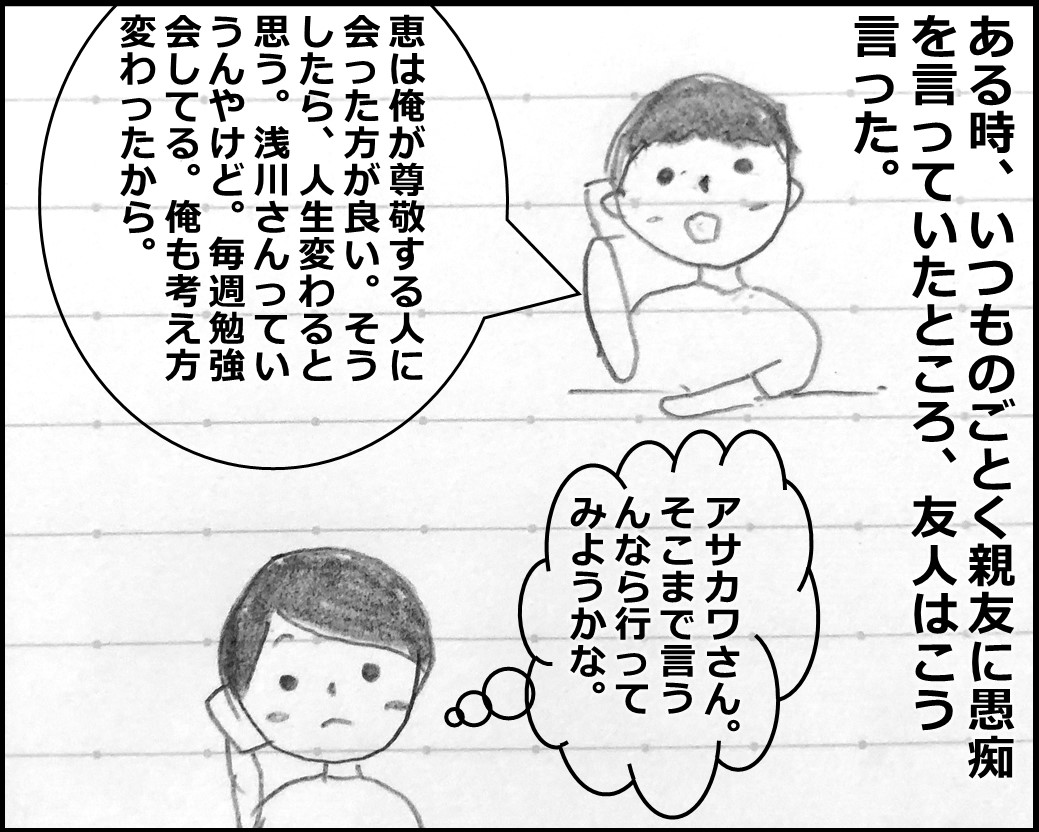 ある時、いつものごとく親友に愚痴
を言っていたところ、友人はこう
言った。
恵は俺が尊敬する人に
会った方が良い。そう
したら、人生変わると
思う。浅川さんってい
うんやけど。毎週勉強
会してる。俺も考え方
変わったから。
アサカワさん。
そこまで言う
んなら行って
みようかな。